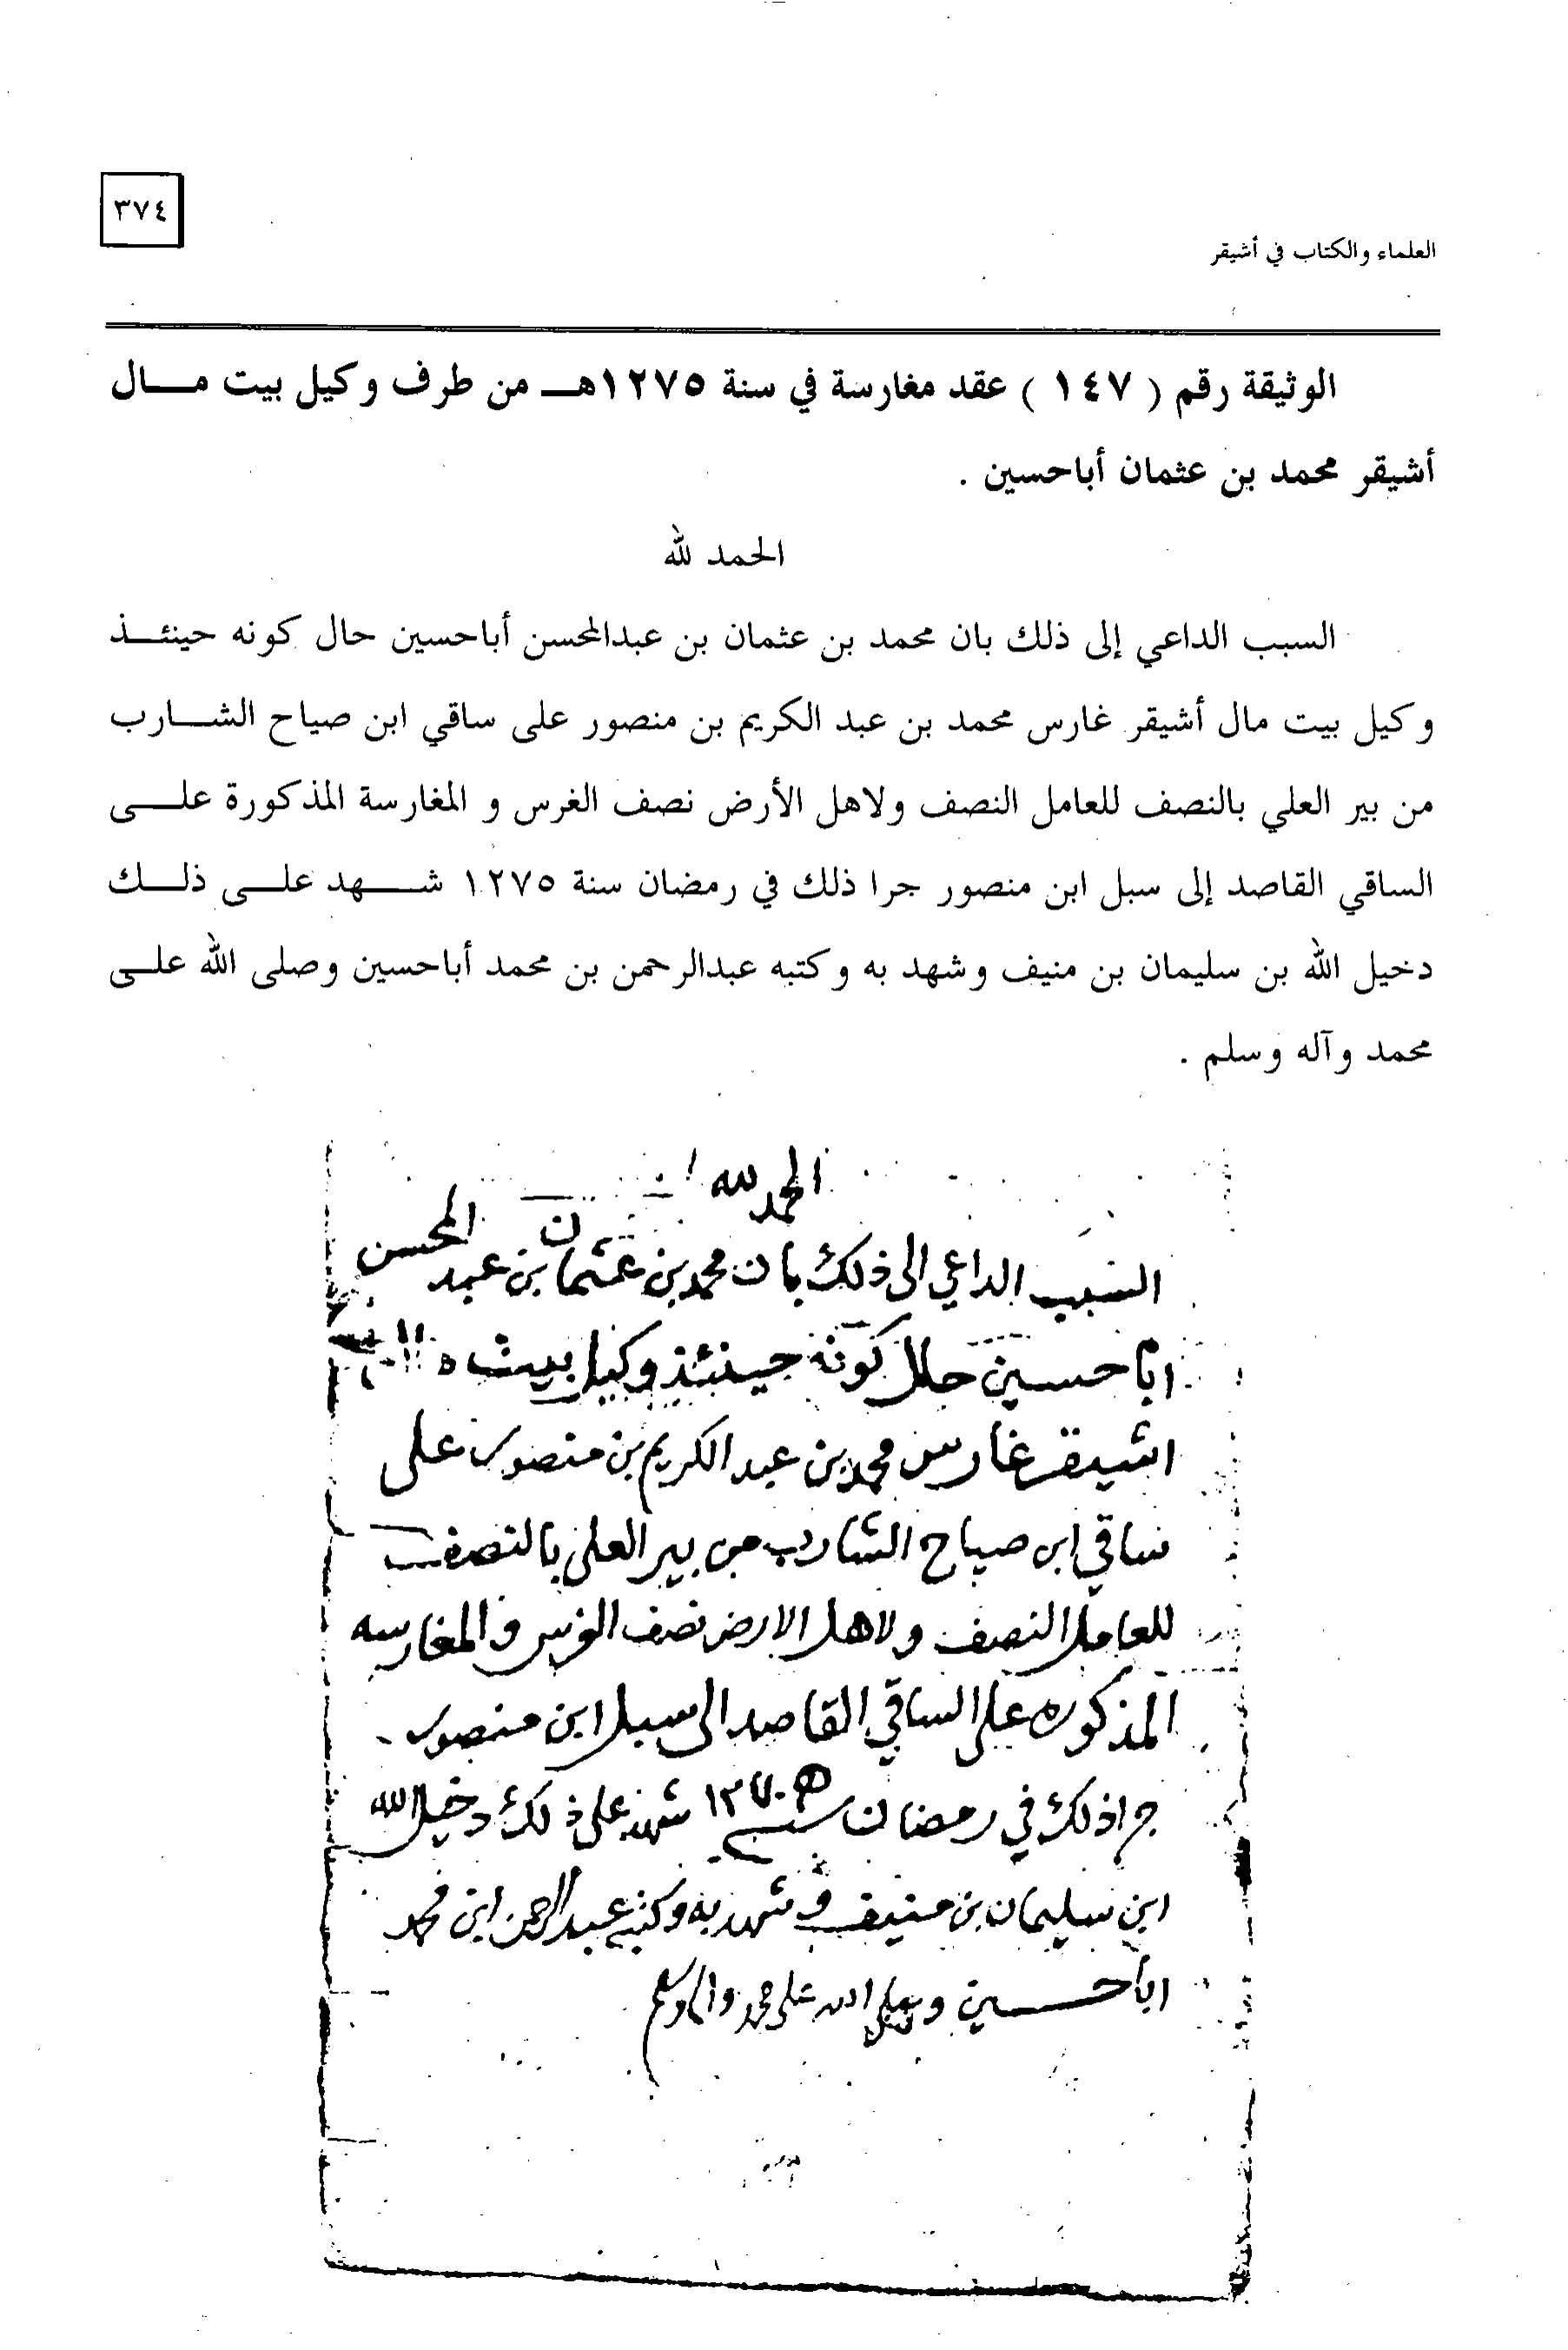 ٣٧٤
العلماء والكتاب في أشيقر
الوثيقة رقم ( ١٤٧ ) عقد مغارسة في سنة ١٢٧٥هـ من طرف وكيل بيت مال
أشيقر محمد بن عثمان أباحسين .
الحمد لله
السبب الداعي إلى ذلك بان محمد بن عثمان بن عبدالمحسن أباحسين حال كونه حينئذ
وكيل بيت مال أشيقر غارس محمد بن عبد الكريم بن منصور على ساقي ابن صياح الشارب
من بير العلي بالنصف للعامل النصف ولاهل الأرض نصف الغرس و المغارسة المذكورة على
الساقي القاصد إلى سبل ابن منصور جرا ذلك في رمضان سنة ١٢٧٥ شهد على ذلك
دخيل الله بن سليمان بن منيف وشهد به وكتبه عبدالرحمن بن محمد أباحسين وصلى الله على
محمد وآله وسلم .
الحمد لله
السبب الداعي الى ذلك بان محمد بن عثمان بن عبد المحسن
اباحسين حال كونه حينئذ وكيل بيت
اشيقر غارس محمد بن عبد الكريم بن منصور على
ساقي ابن صياح الشارب من بير العلي بالنصف
للعامل النصف ولاهل الارض نصف الغرس والمغارسه
المذكوره على الساقي القاصد الى سبل ابن منصور
جرا ذلك في رمضان سنة ١٢٧٥ شهد على ذلك دخيل الله
ابن سليمان بن منيف وشهد به وكتبه عبدالرحمن ابن محمد
اباحسين وصلى الله على محمد واله وسلم